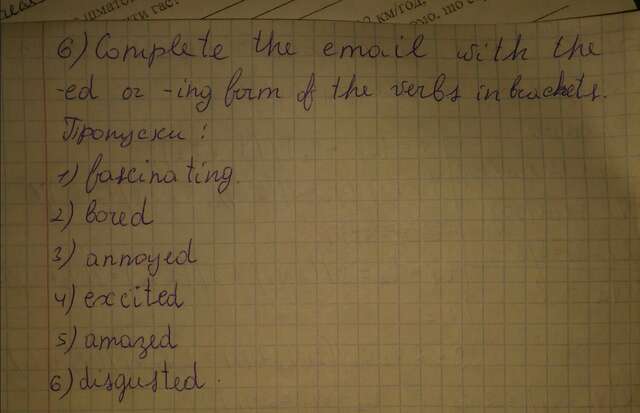 шмато
сти гас
2 км/год.
що с
6) Complete the email with the
-ed or -ing form of the verbs in brackets.
Пропуски:
1) fascinating.
2) bored
3) annoyed
4) excited
5) amazed
6) disgusted.